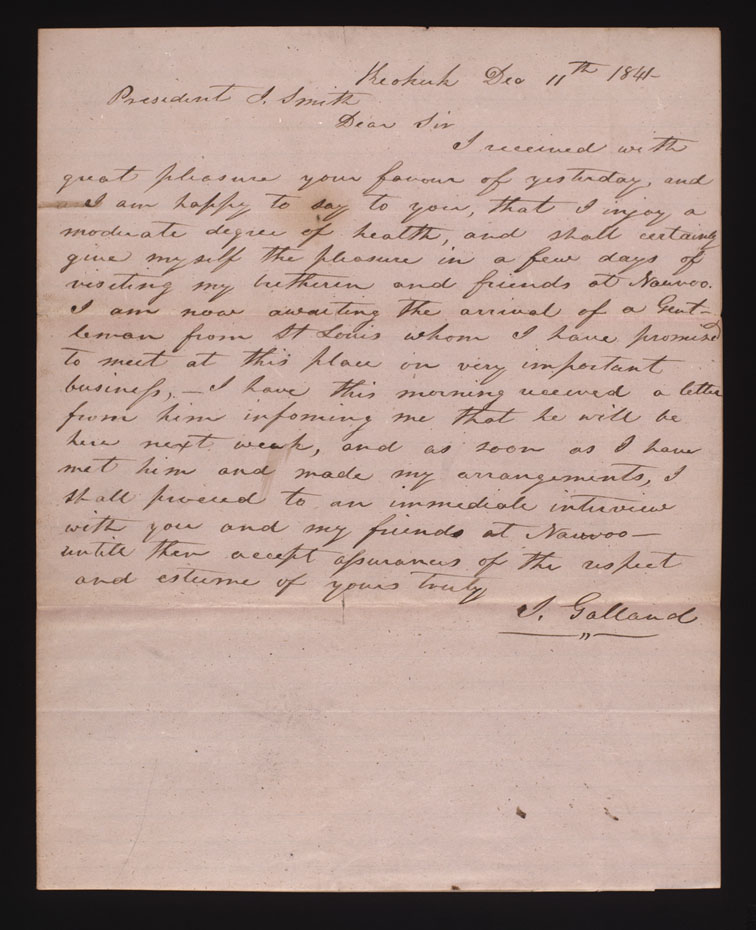 Keokuk Dec 11th 1841
President J. Smith
Dear Sir
I received with
great pleasure your favour of yesterday, and
I am happy to say to you, that I injoy a
moderate degree of health, and shall certainly
give myself the pleasure in a few days of
visiting my bretherin and friends at Nauvoo.
I am now awaiting the arrival of a Gent-
leman from St Louis whom I have promised
to meet at this place on very important
business, — I have this morning received a letter
from him infoming me that he will be
here next weak, and as soon as I have
met him and made my arrangements, I
shall proceed to an immediate interview
with you and my friends at Nauvoo —
untill then accept assurances of the respect
and esteeme of yours truly
I. Galland